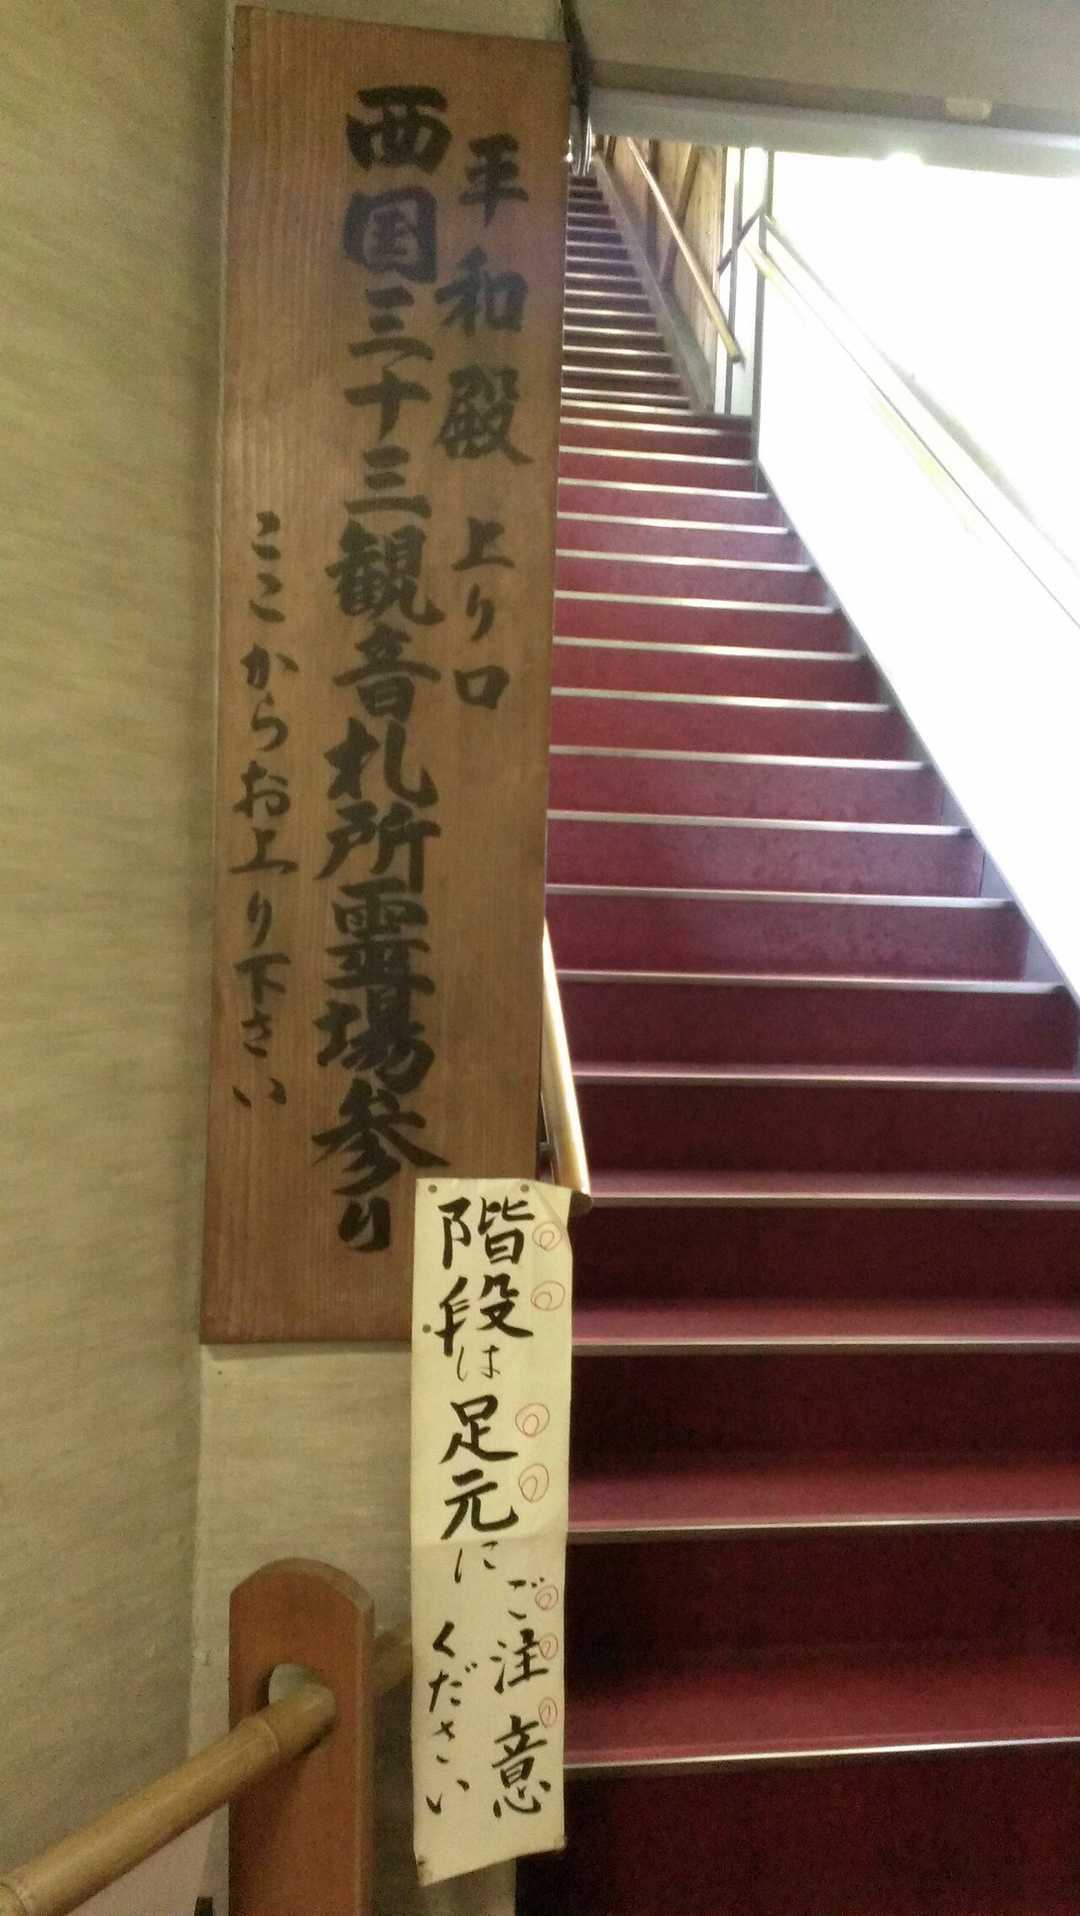 平和殿 上り口
西国三十三観音札所霊場参り
ここからお上り下さい
階段は足元に
ご注意
ください